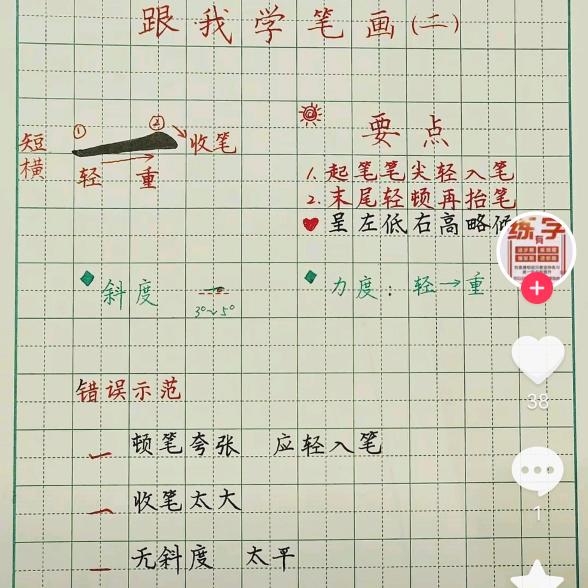 跟我学笔画(二)
短横
① ② 收笔
轻 重
要点
1. 起笔笔尖轻入笔
2. 末尾轻顿再抬笔
呈左低右高略倾
斜度
3°~5°
力度：轻→重
错误示范
顿笔夸张 应轻入笔
收笔太大
无斜度 太平
练字
有
38
1